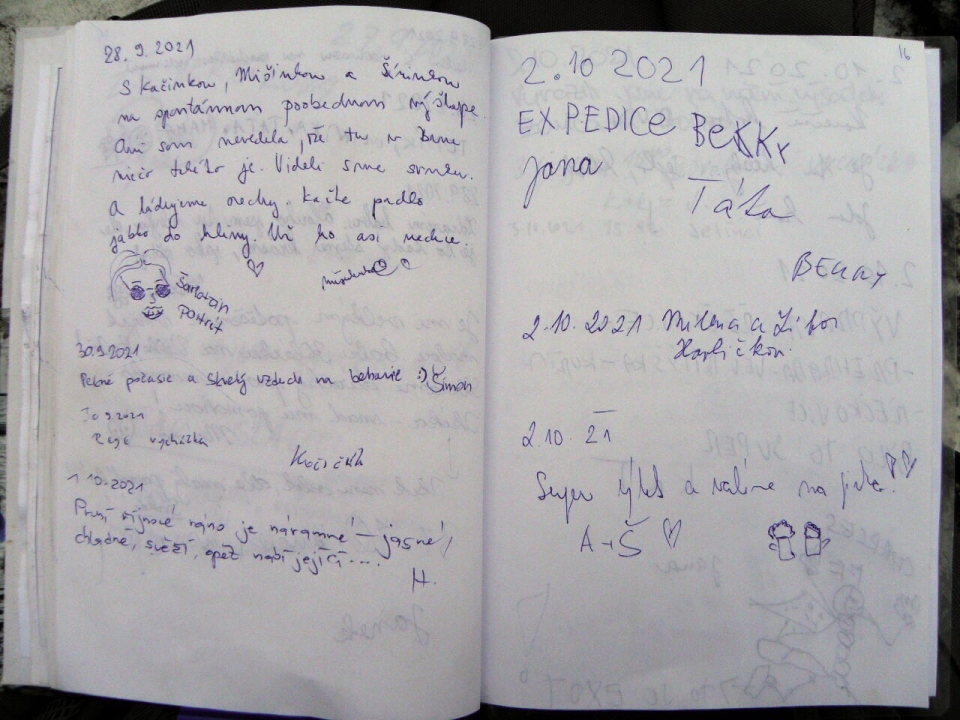 28. 9. 2021
S Kačinkou, Mišinkou a Širinkou
na spontánnom poobednom výšlape.
Ani som nevedela, že tu v Brne
niečo takéto je. Videli sme srnku.
A ládujeme orechy. Katke padlo
jablko do hliny. Už ho asi nechce
Šarlotin
Portrét
30.9.2021
Pekné počasie a skvelý vzduch na behanie :) Šimon
30.9.2021
vycházka
1.10.2021
První říjnové ráno je náramné – jasné,
chladné, svěží, opět nabíjející....
H.
16
2.10 2021
EXPEDICE BEKKY
jana
Táta
BEKKY
2.10.2021 Milena a Libor
Havlíčkovi
2.10.21
Super výhled a valíme na pivko!!
A+Š